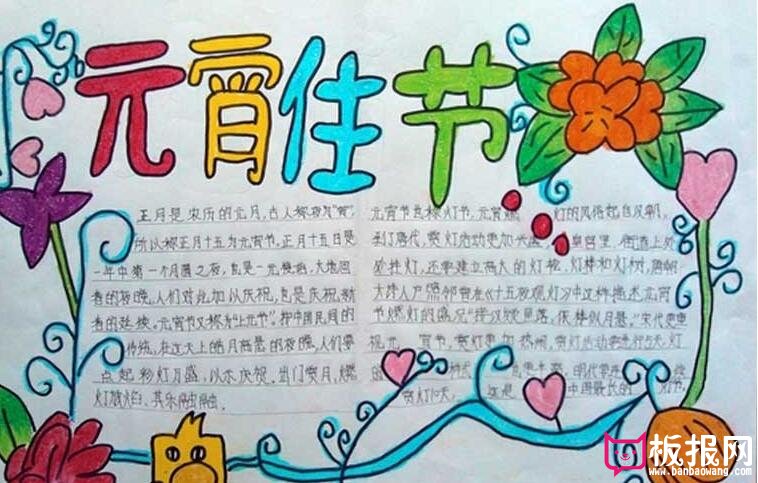 元宵佳节
正月是农历的元月，古人称夜为"宵"，
所以称正月十五为元宵节。正月十五日是
一年中第一个月圆之夜，也是一元复始，大地回
春的夜晚，人们对此加以庆祝，也是庆祝新
春的延续。元宵节又称为"上元节"。按中国民间的
传统，在这天上皓月高悬的夜晚，人们要
点起彩灯万盏，以示庆贺。出门赏月，燃
灯放焰，其乐融融。
元宵节也称灯节，元宵燃灯的风俗起自汉朝，
到了唐代，赏灯活动更加兴盛，皇宫里、街道上处
处挂灯，还要建立高大的灯轮、灯楼和灯树，唐朝
大诗人卢照邻曾在《十五夜观灯》中这样描述元宵
节燃灯的盛况"接汉疑星落，依楼似月悬。"宋代更重
视元宵节，赏灯更加热闹，赏灯活动要进行5天，灯
的样式也更丰富。明代要连
赏灯10天，这是中国最长的灯节，
板报网
www.banbaowang.com